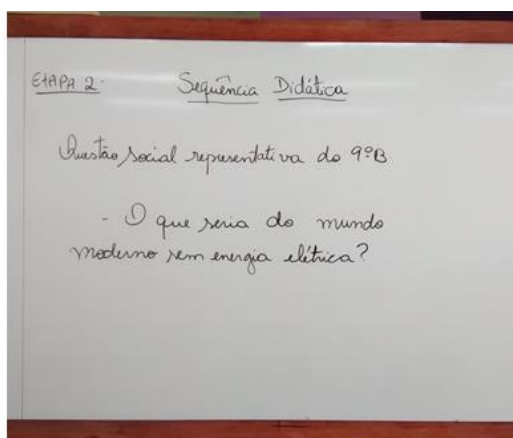 ETAPA 2. Sequência Didática
Questão social representativa do 9ºB
- O que seria do mundo
moderno sem energia elétrica?